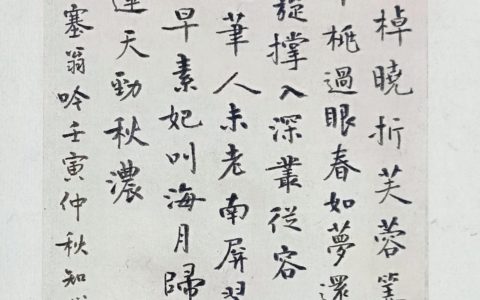 棹曉折芙蓉
桃過眼春如夢還
旋撐入深叢從容
筆人未老南屏翠
早素妃叫海月歸
連天勁秋濃
塞翁吟壬寅仲秋知